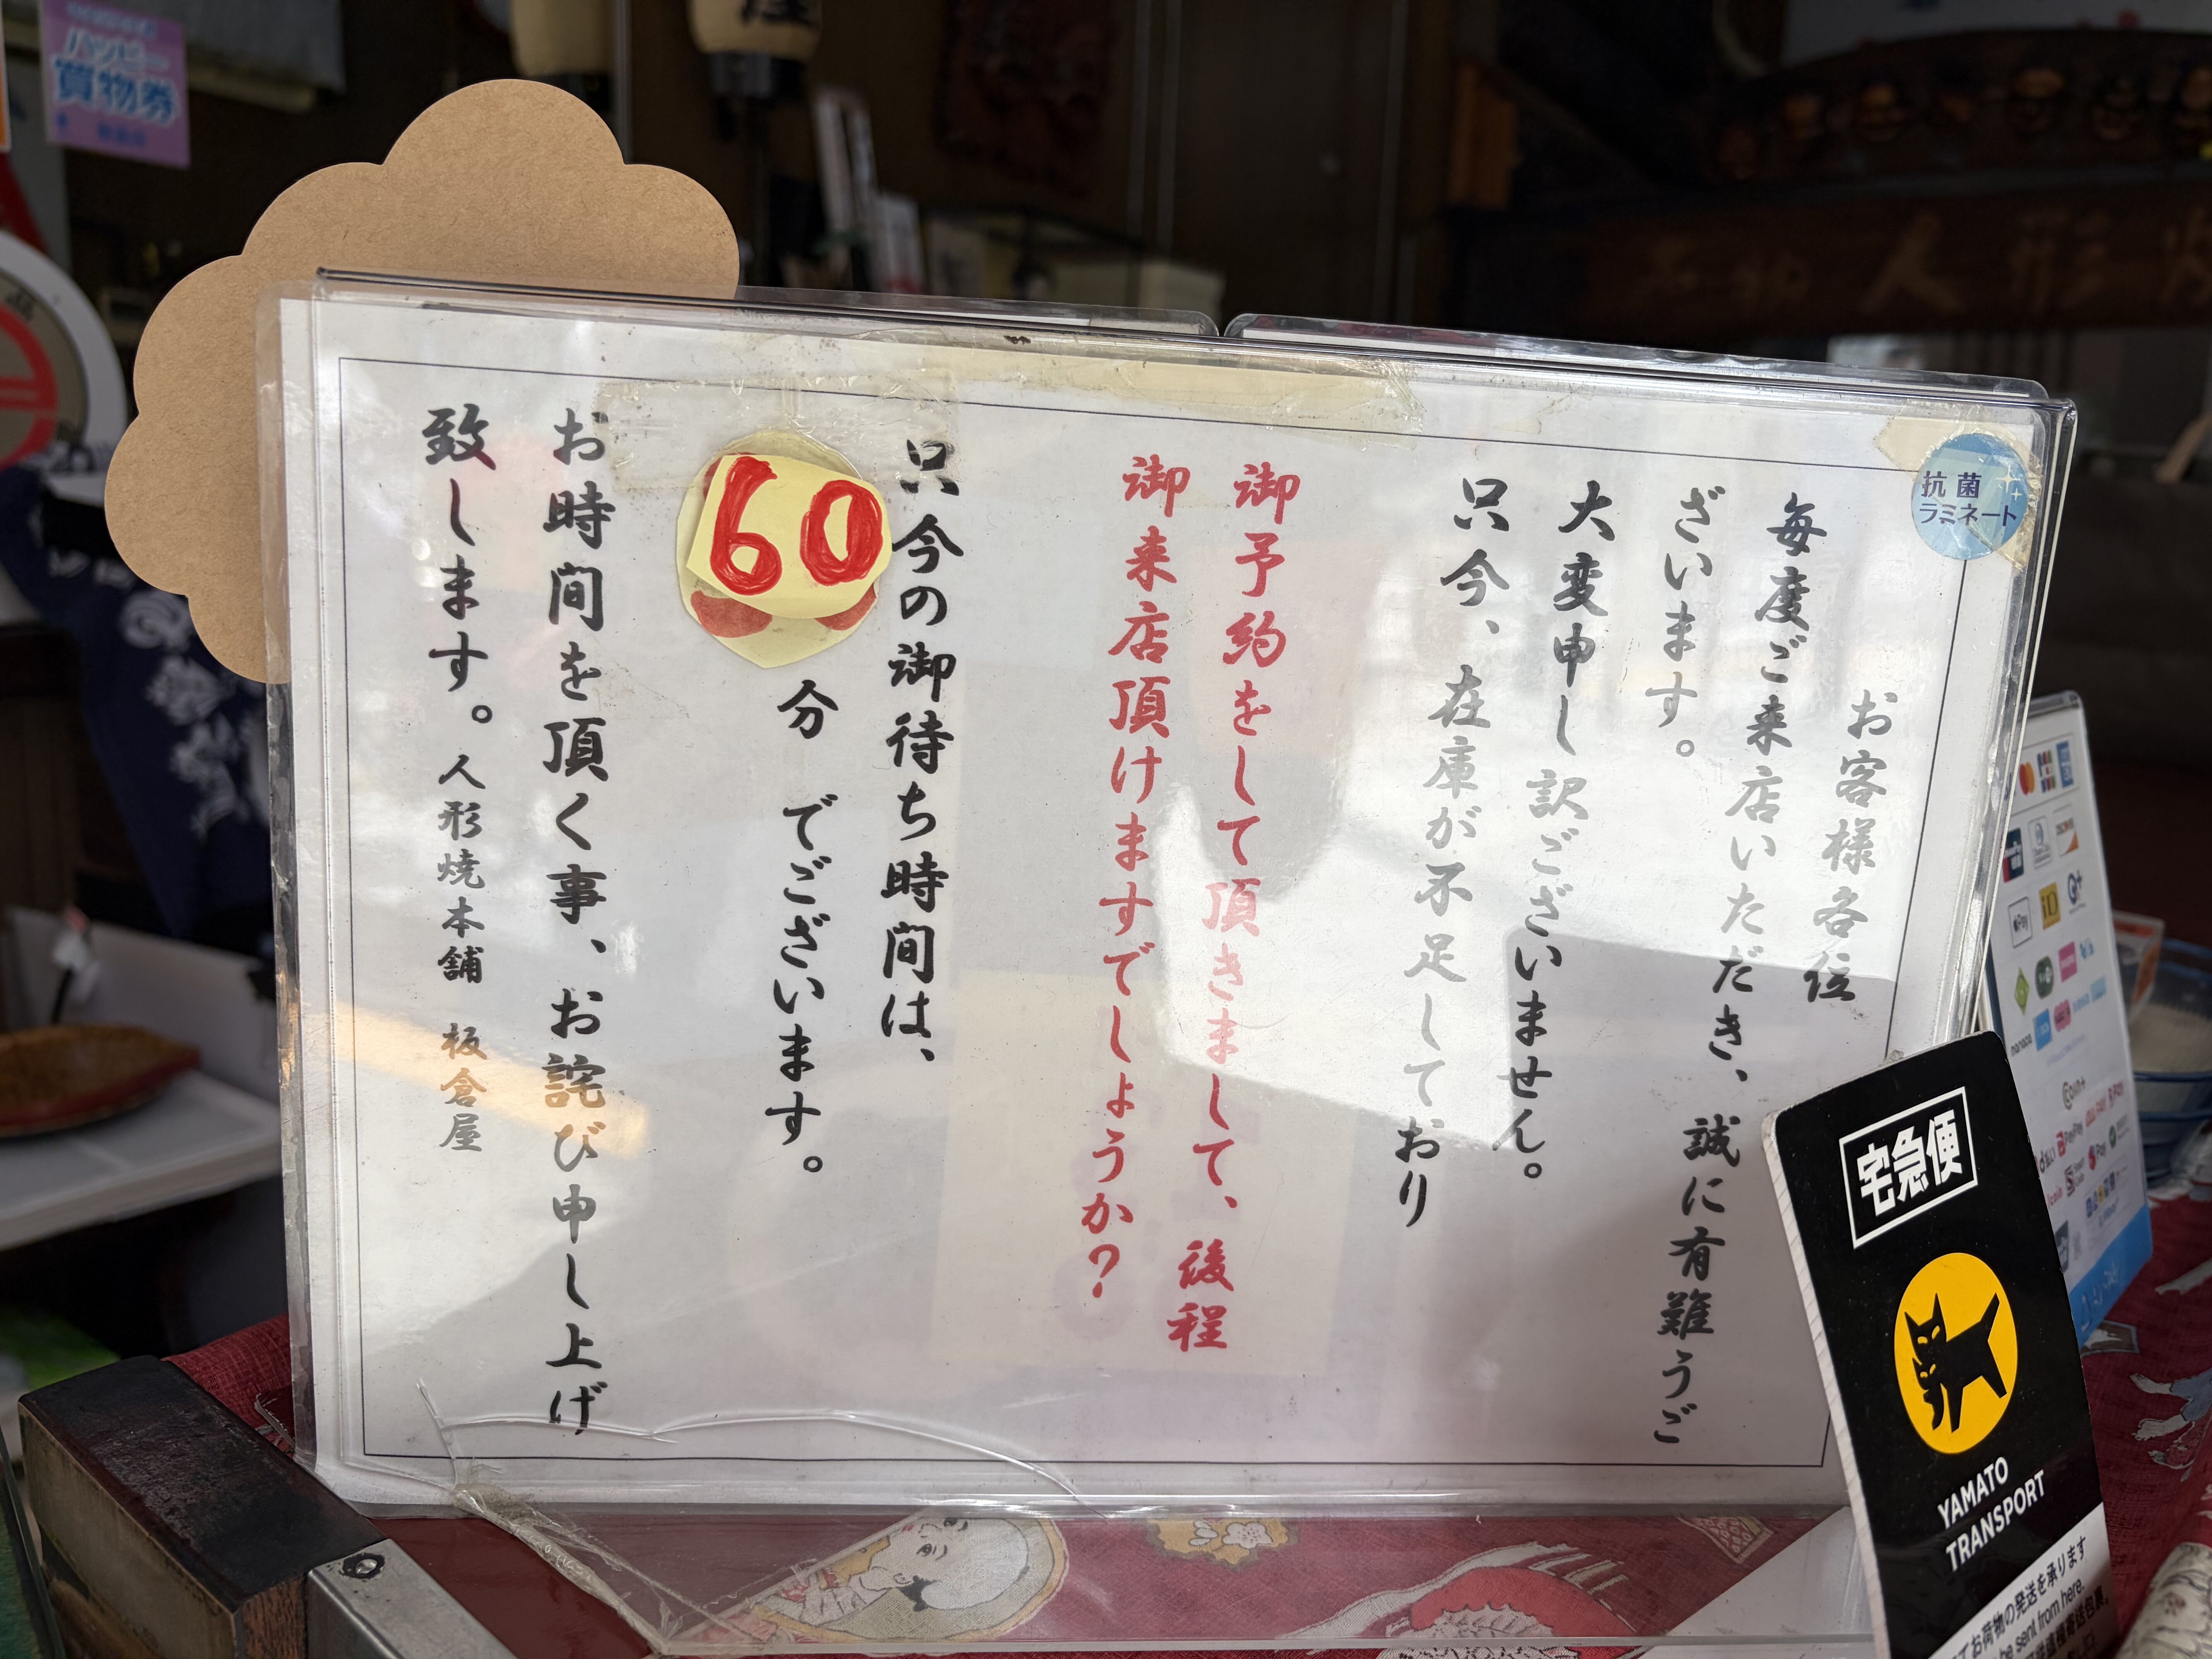 お客様各位
毎度ご来店いただき、誠に有難うご
ざいます。
大変申し訳ございません。
只今、在庫が不足しており
御予約をして頂きまして、後程
御来店頂けますすでしょうか?
只今の御待ち時間は、
60分 でございます。
お時間を頂く事、お詫び申し上げ
致します。人形焼本舗 板倉屋
抗菌
ラミネート
ハッピー
買物券
宅急便
YAMATO
TRANSPORT
お荷物の発送を承ります
be sent from here.
iD
Pay
nanaco
PayPay